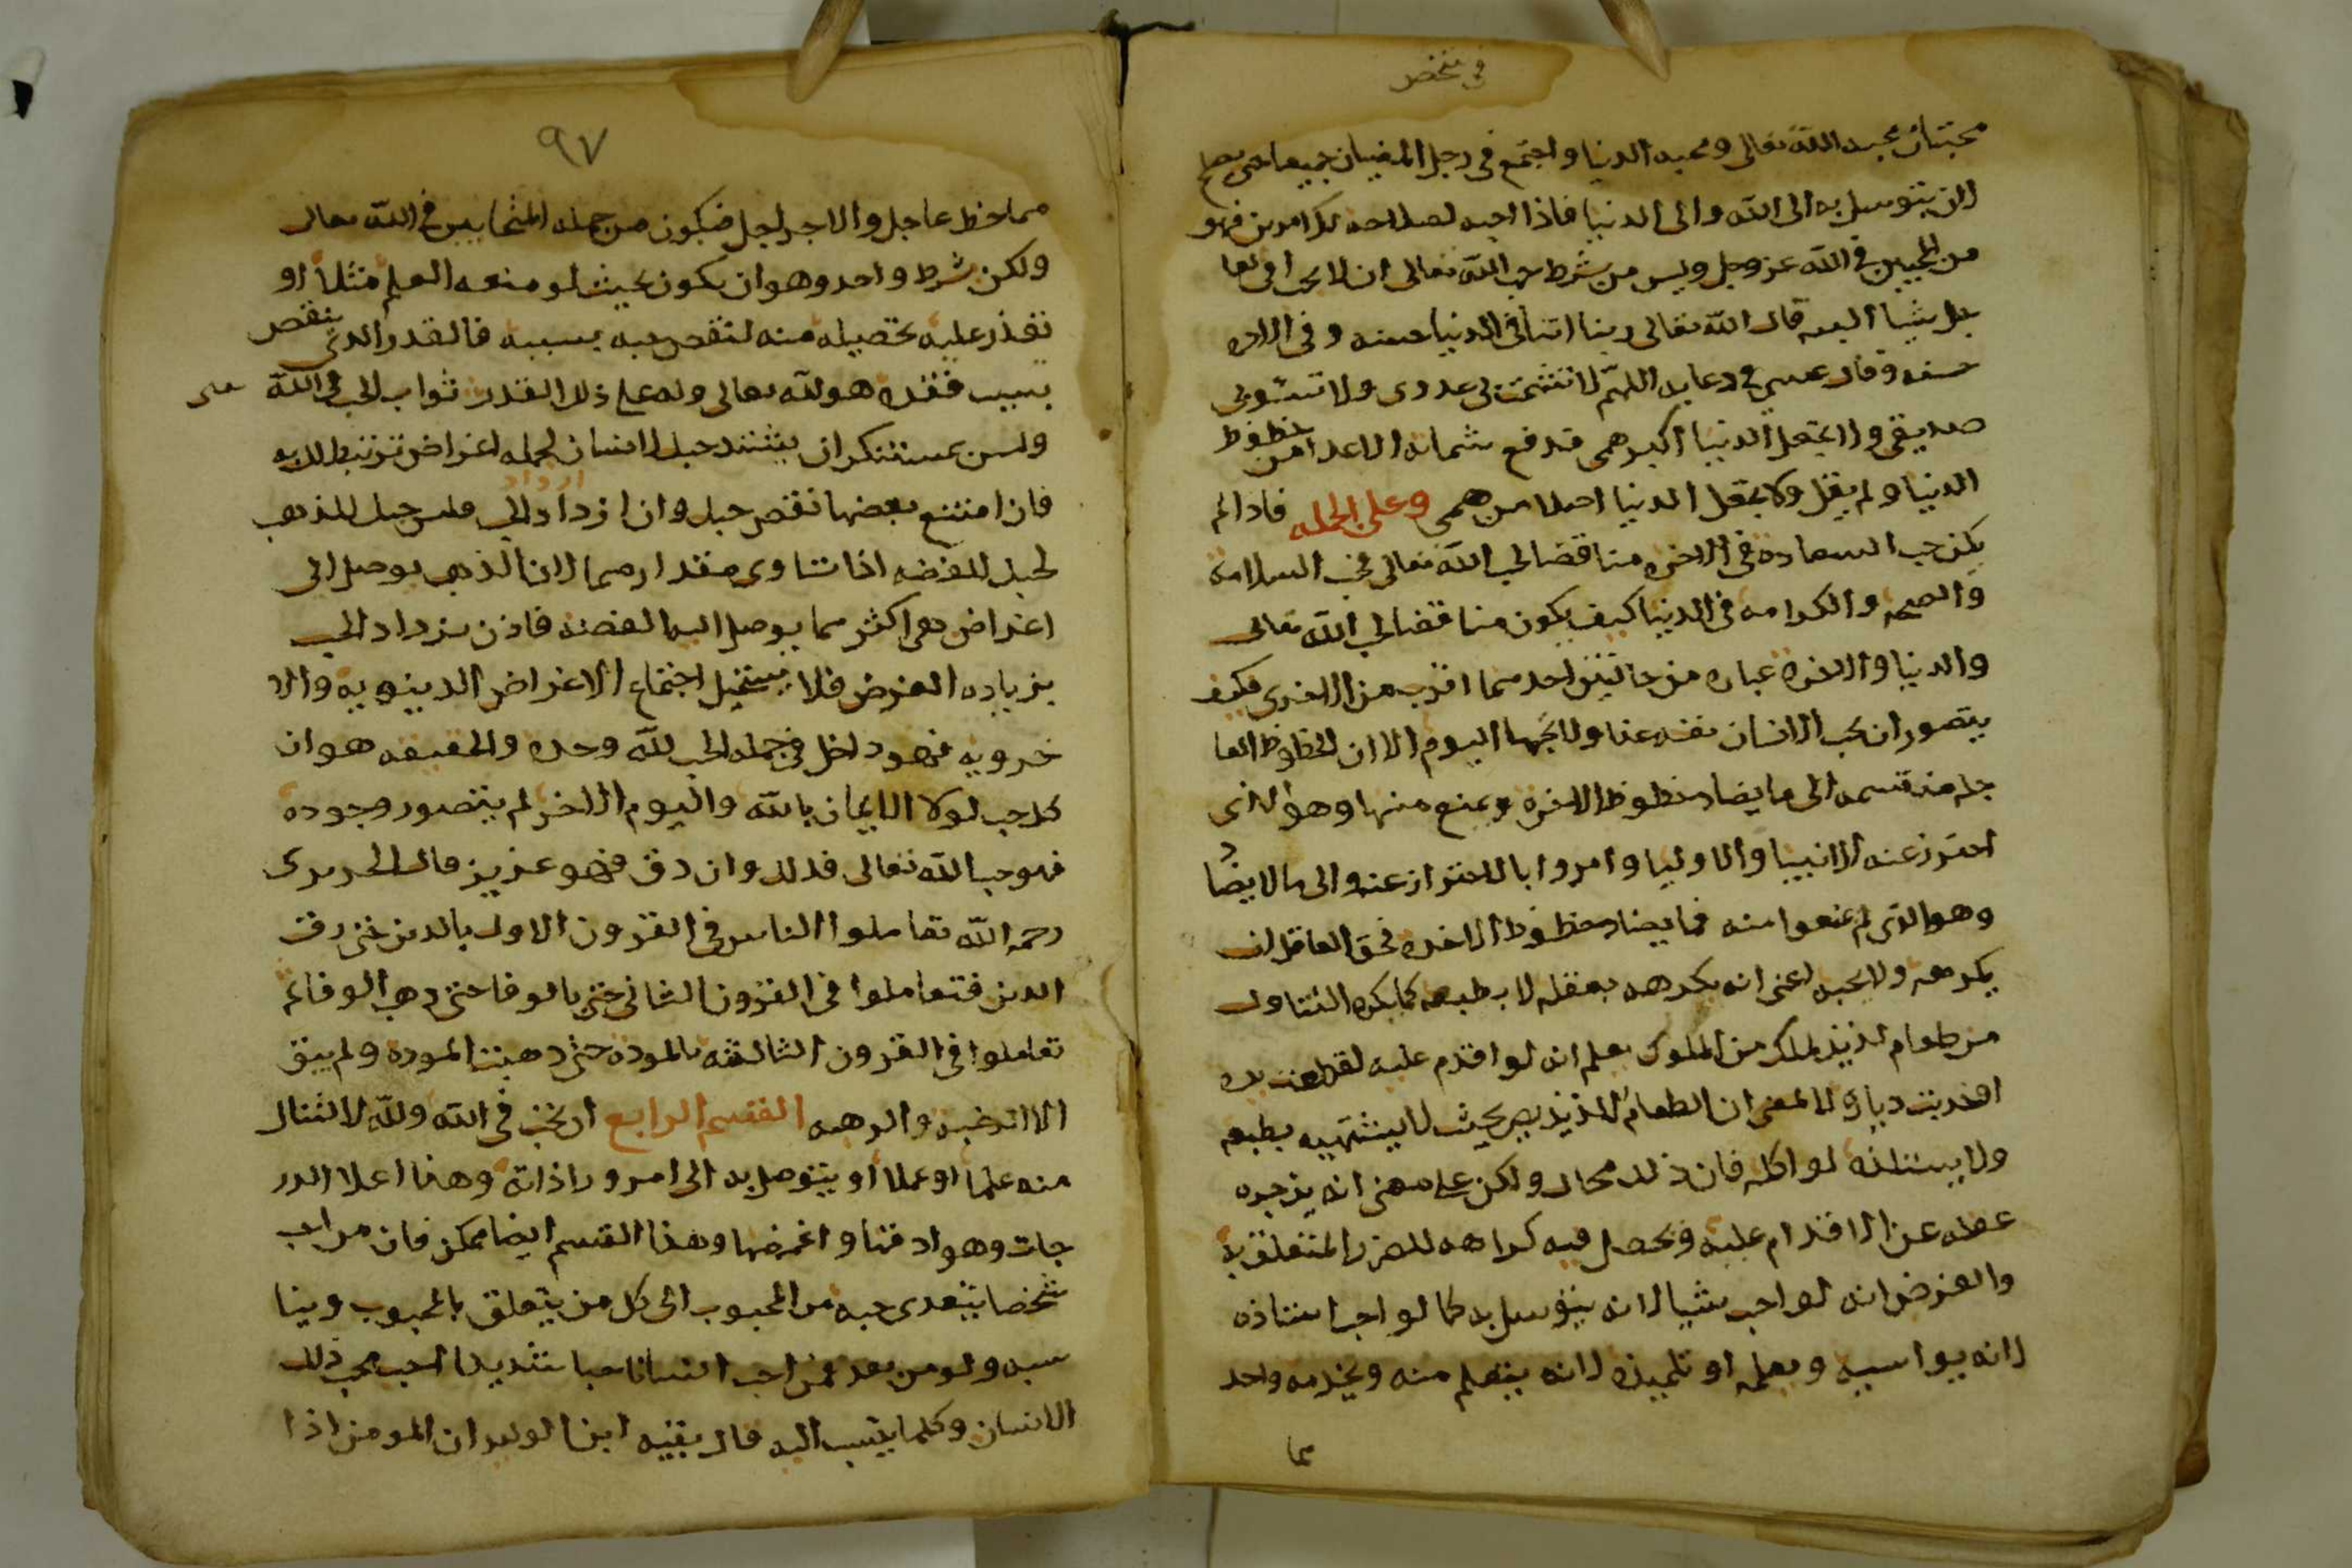 في شخص
محبتان محبه الله تعالى ومحبه الدنيا واجتمع في رجل المعنيان جميعا حتى يصلح
لان يتوسل به الى الله والى الدنيا فاذا احبه لصلاحه للامرين فهو
من المحبين في الله عز وجل وليس من شرط حب الله تعالى ان لا يحب في العا
جل شيا البته قال الله تعالى ربنا اتنا في الدنيا حسنه وفي الاخره
حسنه وقال عيسى في دعايه اللهم لا تشمت بي عدوى ولا تسوبي
صديقي ولا تجعل الدنيا اكبر همي فدفع شماته الاعدا من حظوظ
الدنيا ولم يقل ولا تجعل الدنيا اصلا من همي وعلى الجمله فاذا لم
يكن حب السعاده في الاخره مناقضا لحب الله تعالى فحب السلامه
والصحه والكرامه في الدنيا كيف يكون مناقضا لحب الله تعالى
والدنيا والاخره عباره من حالتين احدهما اقرب من الاخرى فكيف
يتصور ان يحب الانسان نفسه غدا ولا يحبها اليوم الا ان الحظوظ العا
جله منقسمه الى ما يضاد حظوظ الاخره ويمنع منها وهو الذى
احترز عنه الانبيا والاوليا وامروا بالاحتراز عنه والى ما لا يضاد
وهو الذي لم يمنعوا منه فما يضاد حظوظ الاخره فحق العاقل ان
يكرهه ولا يحبه اعني انه يكرهه بعقله لا بطبعه كما يكره التناول
من طعام لذيذ لملك من الملوك يعلم انه لو اقدم عليه لقطعت يده
او ضربت رقبته لا لمعنى ان الطعام اللذيذ يصير بحيث لا يشتهيه بطبعه
ولا يستلذه لو اكله فان ذلك محال ولكن على معنى انه يزجره
عقله عن الاقدام عليه ويحصل فيه كراهه للضرر المتعلق به
والغرض انه لو احب شيا لانه يتوسل به كما لو احب استاذه
لانه يواسيه ويعلمه او تلميذه لانه يتعلم منه ويخدمه واحد
هما
٩٧
هما حظ عاجل والاخر اجل فيكون من جمله المتحابين في الله تعالى
ولكن بشرط واحد وهو ان يكون بحيث لو منعه العلم مثلا او
تعذر عليه تحصيله منه لنقص حبه بسببه فالقدر الذي ينقص
بسبب فقده هو لله تعالى وله على ذلك القدر ثواب الحب في الله
وليس بمستنكر ان يشتد حبك لانسان لجمله اغراض ترتبط لك به
فان امتنع بعضها نقص حبك وان ازداد الحب فليس حبك للذهب
ازداد
كحبك للفضه اذا تساوى مقدارهما لان الذهب يوصل الى
اغراض هي اكثر مما يوصل اليه الفضه فاذن يزداد الحب
بزياده الغرض فلا يستحيل اجتماع الاغراض الدنيويه والا
خرويه فهو داخل في جمله الحب لله وحده والحقيقه هو ان
كل حب لولا الايمان بالله واليوم الاخر لم يتصور وجوده
فهو حب الله تعالى فذلك وان دق فهو عزيز قال الحريرى
رحمه الله تعاملوا الناس في القرون الاول بالدين حتى رقت
الدين فتعاملوا في القرون الثاني حتى بالوفا حتى ذهب الوفا ثم
تعاملوا في القرون الثالثه بالموده حتى ذهبت الموده ولم يبق
الا الرغبه والرهبه القسم الرابع ان يحب في الله ولله لا لينال
منه علما او عملا او يتوصل به الى امر ورا ذاته وهذا اعلا الدر
جات وهو ادقها واغمضها وهذا القسم ايضا ممكن فان من احب
شخصا يتعدى حبه من المحبوب الى كل من يتعلق بالمحبوب ويناـ
سبه ولو من بعد فمن احب انسانا حبا شديدا احب محب ذلك
الانسان وكلما ينتسب اليه قال بقيه ابن الوليد ان المومن اذا